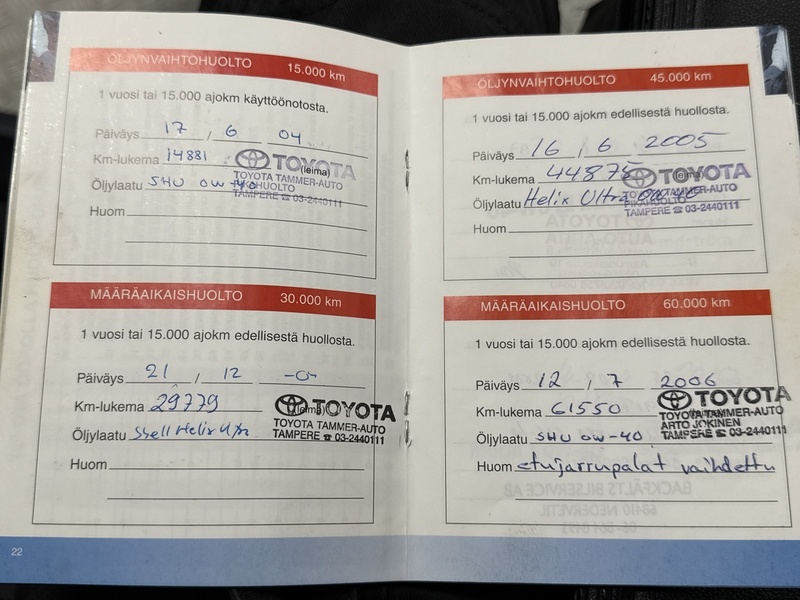 ÖLJYNVAIHTOHUOLTO 15.000 km
1 vuosi tai 15.000 ajokm käyttöönotosta.
Päiväys 17 / 6 04
Km-lukema 14881
(leima)
TOYOTA
TOYOTA TAMMER-AUTO
Öljylaatu SHU 0W-40
PIKAHUOLTO
TAMPERE ☎ 03-2440111
Huom
MÄÄRÄAIKAISHUOLTO 30.000 km
1 vuosi tai 15.000 ajokm edellisestä huollosta.
Päiväys 21 / 12 -0-
Km-lukema 29779
(leima)
TOYOTA
TOYOTA TAMMER-AUTO
Öljylaatu Shell Helix
TAMPERE ☎ 03-2440111
Huom
22
ÖLJYNVAIHTOHUOLTO 45.000 km
1 vuosi tai 15.000 ajokm edellisestä huollosta.
Päiväys 16 / 6 2005
Km-lukema 44875
(leima)
TOYOTA
TOYOTA TAMMER-AUTO
Öljylaatu Helix Ultra 0W-40
PIKAHUOLTO
TAMPERE ☎ 03-2440111
Huom
MÄÄRÄAIKAISHUOLTO 60.000 km
1 vuosi tai 15.000 ajokm edellisestä huollosta.
Päiväys 12 / 7 2006
Km-lukema 61550
TOYOTA
TOYOTA TAMMER-AUTO
ARTO JOKINEN
Öljylaatu SHU 0W-40
TAMPERE ☎ 03-2440111
Huom etujarrupalat vaihdettu